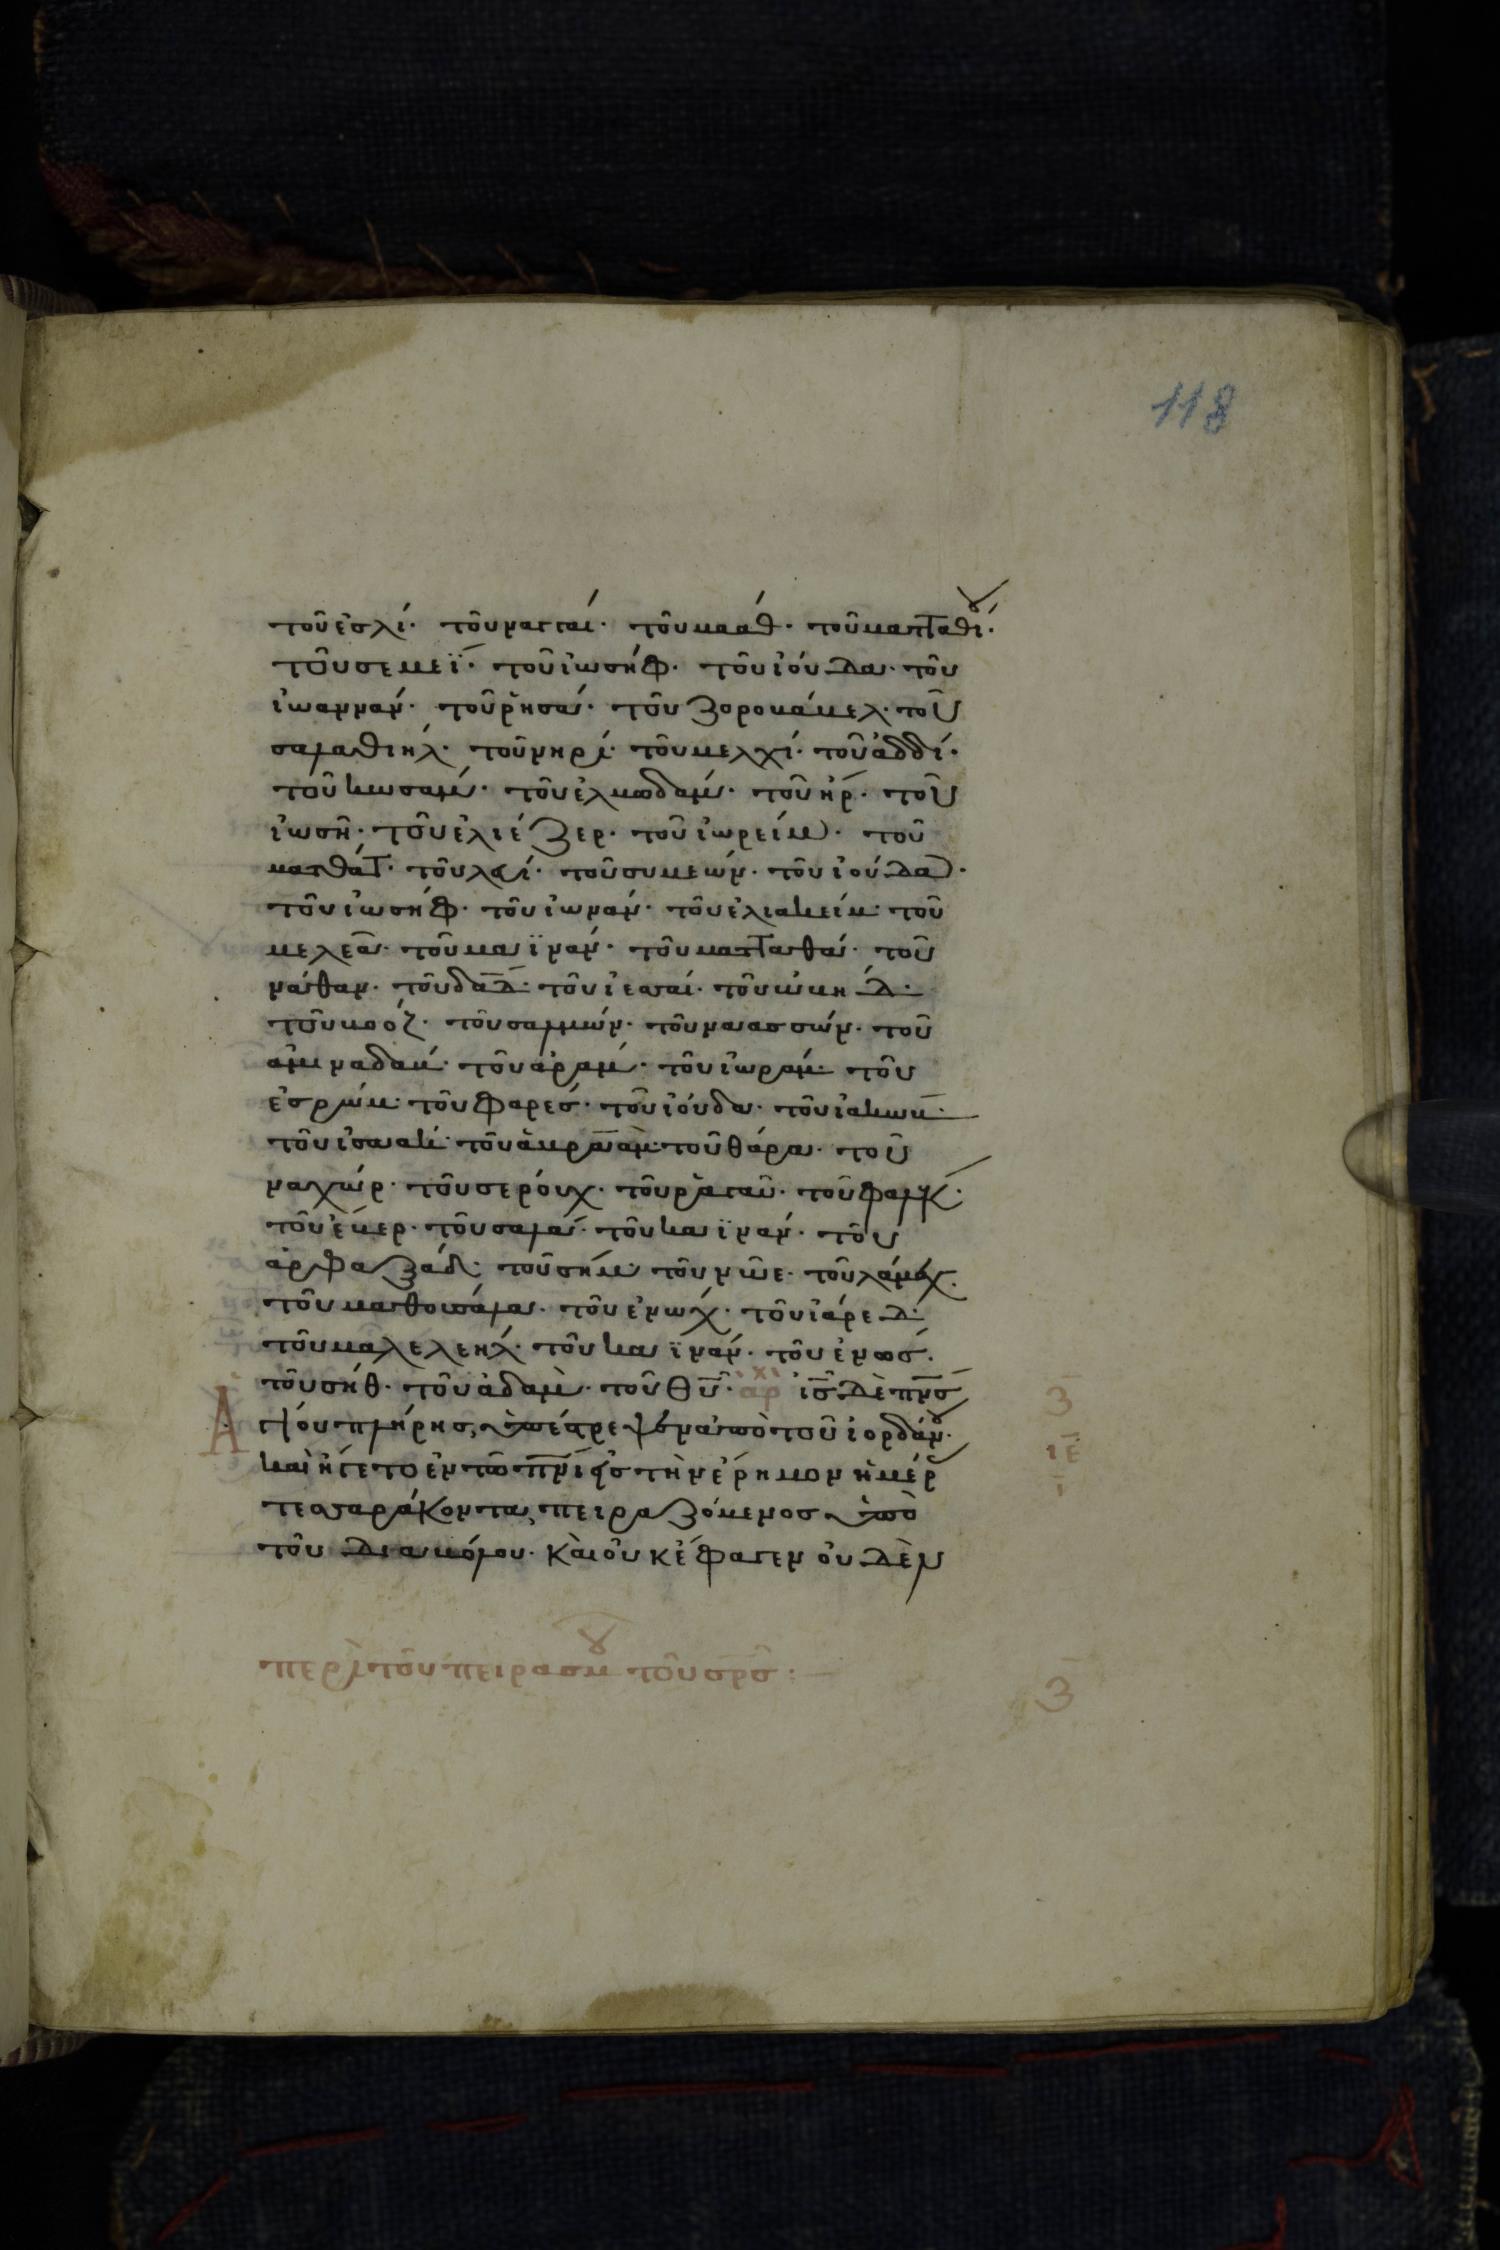 118
τοῦ ἐσλί· τοῦ ναγγαί· τοῦ μαάθ· τοῦ ματταθίου·
τοῦ σεμεΐ· τοῦ ἰωσήφ· τοῦ ἰούδα· τοῦ
ἰωαννάν· τοῦ ῥησά· τοῦ ζοροβάβελ· τοῦ
σαλαθιήλ· τοῦ νηρί· τοῦ μελχί· τοῦ ἀδδί·
τοῦ κωσάμ· τοῦ ἐλμωδάμ· τοῦ ἤρ· τοῦ
ἰωσῆ· τοῦ ἐλιέζερ· τοῦ ἰωρείμ· τοῦ
ματθάτ· τοῦ λευί· τοῦ συμεών· τοῦ ἰούδα·
τοῦ ἰωσήφ· τοῦ ἰωνάν· τοῦ ἐλιακείμ· τοῦ
μελεᾶ· τοῦ μαϊνάν· τοῦ ματταθά· τοῦ
νάθαν· τοῦ δα̅δ· τοῦ ἰεσσαί· τοῦ ὠβήδ·
τοῦ βοόζ· τοῦ σαλμών· τοῦ ναασσών· τοῦ
ἀμιναδάβ· τοῦ ἀράμ· τοῦ ἰωράμ· τοῦ
ἐσρώμ· τοῦ φαρές· τοῦ ἰούδα· τοῦ ἰακώβ·
τοῦ ἰσαάκ· τοῦ ἀβραὰμ· τοῦ θάρα· τοῦ
ναχώρ· τοῦ σερούχ· τοῦ ῥαγαῦ· τοῦ φαλέκ·
τοῦ ἔβερ· τοῦ σαλά· τοῦ καϊνάν· τοῦ
ἀρφαξάδ· τοῦ σήμ· τοῦ νῶε· τοῦ λάμεχ·
τοῦ μαθουσάλα· τοῦ ἐνώχ· τοῦ ἰάρεδ·
τοῦ μαλελεήλ· τοῦ καϊνάν· τοῦ ἐνώς·
τοῦ σήθ· τοῦ ἀδάμ· τοῦ θυ̅· ἀρχ ἰς̅ δὲ πνς̅ ζ̅
ἁγίου πλήρης, ὑπέστρεψεν ἀπὸ τοῦ ἰορδάνου· ιε̅
καὶ ἤγετο ἐν τῶ πνι̅ εἰς τὴν ἔρημον ἡμέρας ι̅
τεσσαράκοντα, πειραζόμενος ὑπὸ
τοῦ διαβόλου· καὶ οὐκ ἔφαγεν οὐδὲν
περὶ τοῦ πειρασμοῦ τοῦ σρς̅ :— ζ̅